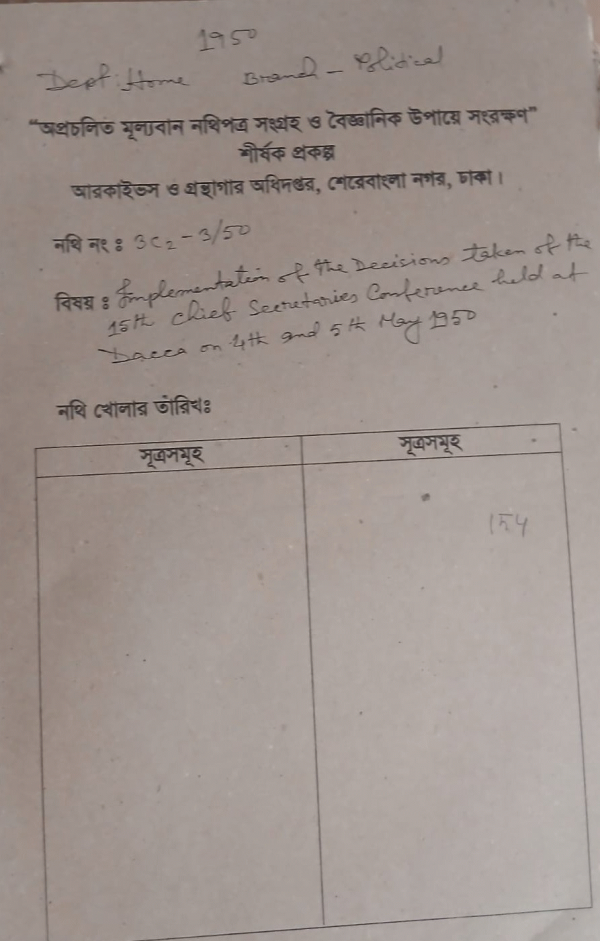 1950
Dept: Home Branch - Political
"অপ্রচলিত মূল্যবান নথিপত্র সংগ্রহ ও বৈজ্ঞানিক উপায়ে সংরক্ষণ"
শীর্ষক প্রকল্প
আরকাইভস ও গ্রন্থাগার অধিদপ্তর, শেরেবাংলা নগর, ঢাকা।
নথি নং : 3C2 - 3/50
বিষয় : Implementation of the Decisions taken of the
15th Chief Secretaries Conference held at
Dacca on 4th and 5th May 1950
নথি খোলার তারিখঃ
সূত্রসমূহ সূত্রসমূহ